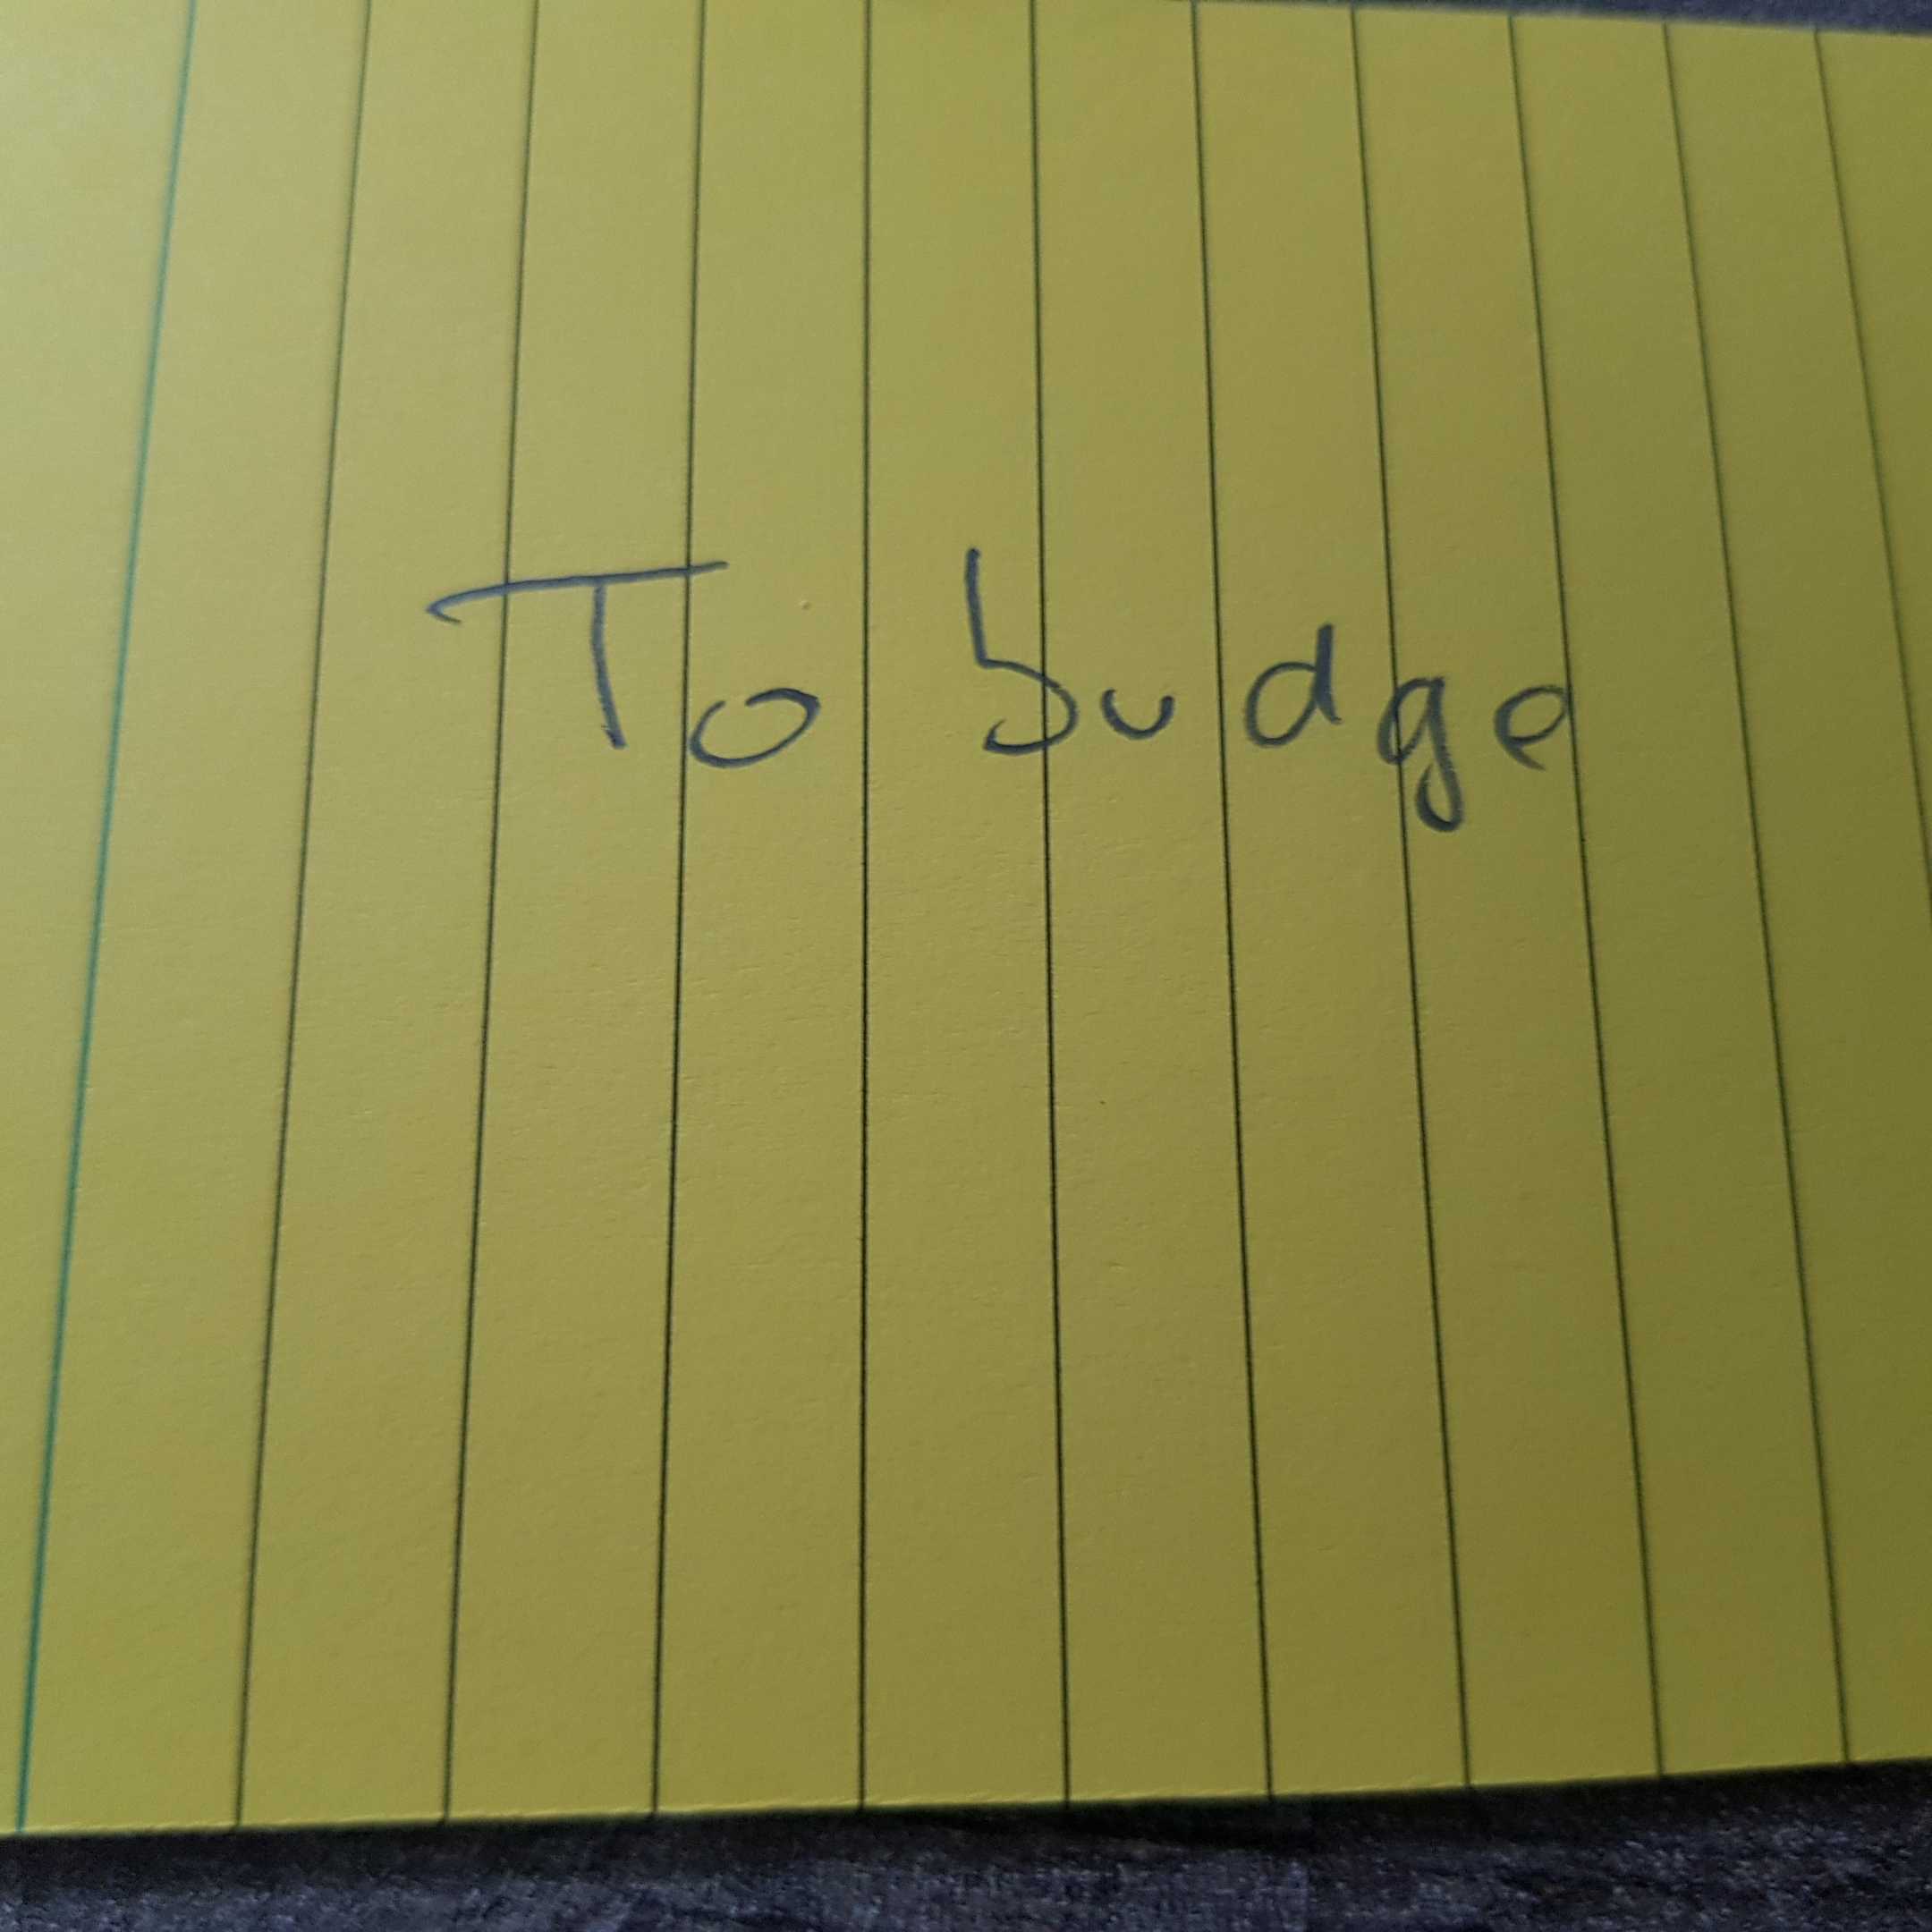 To budge